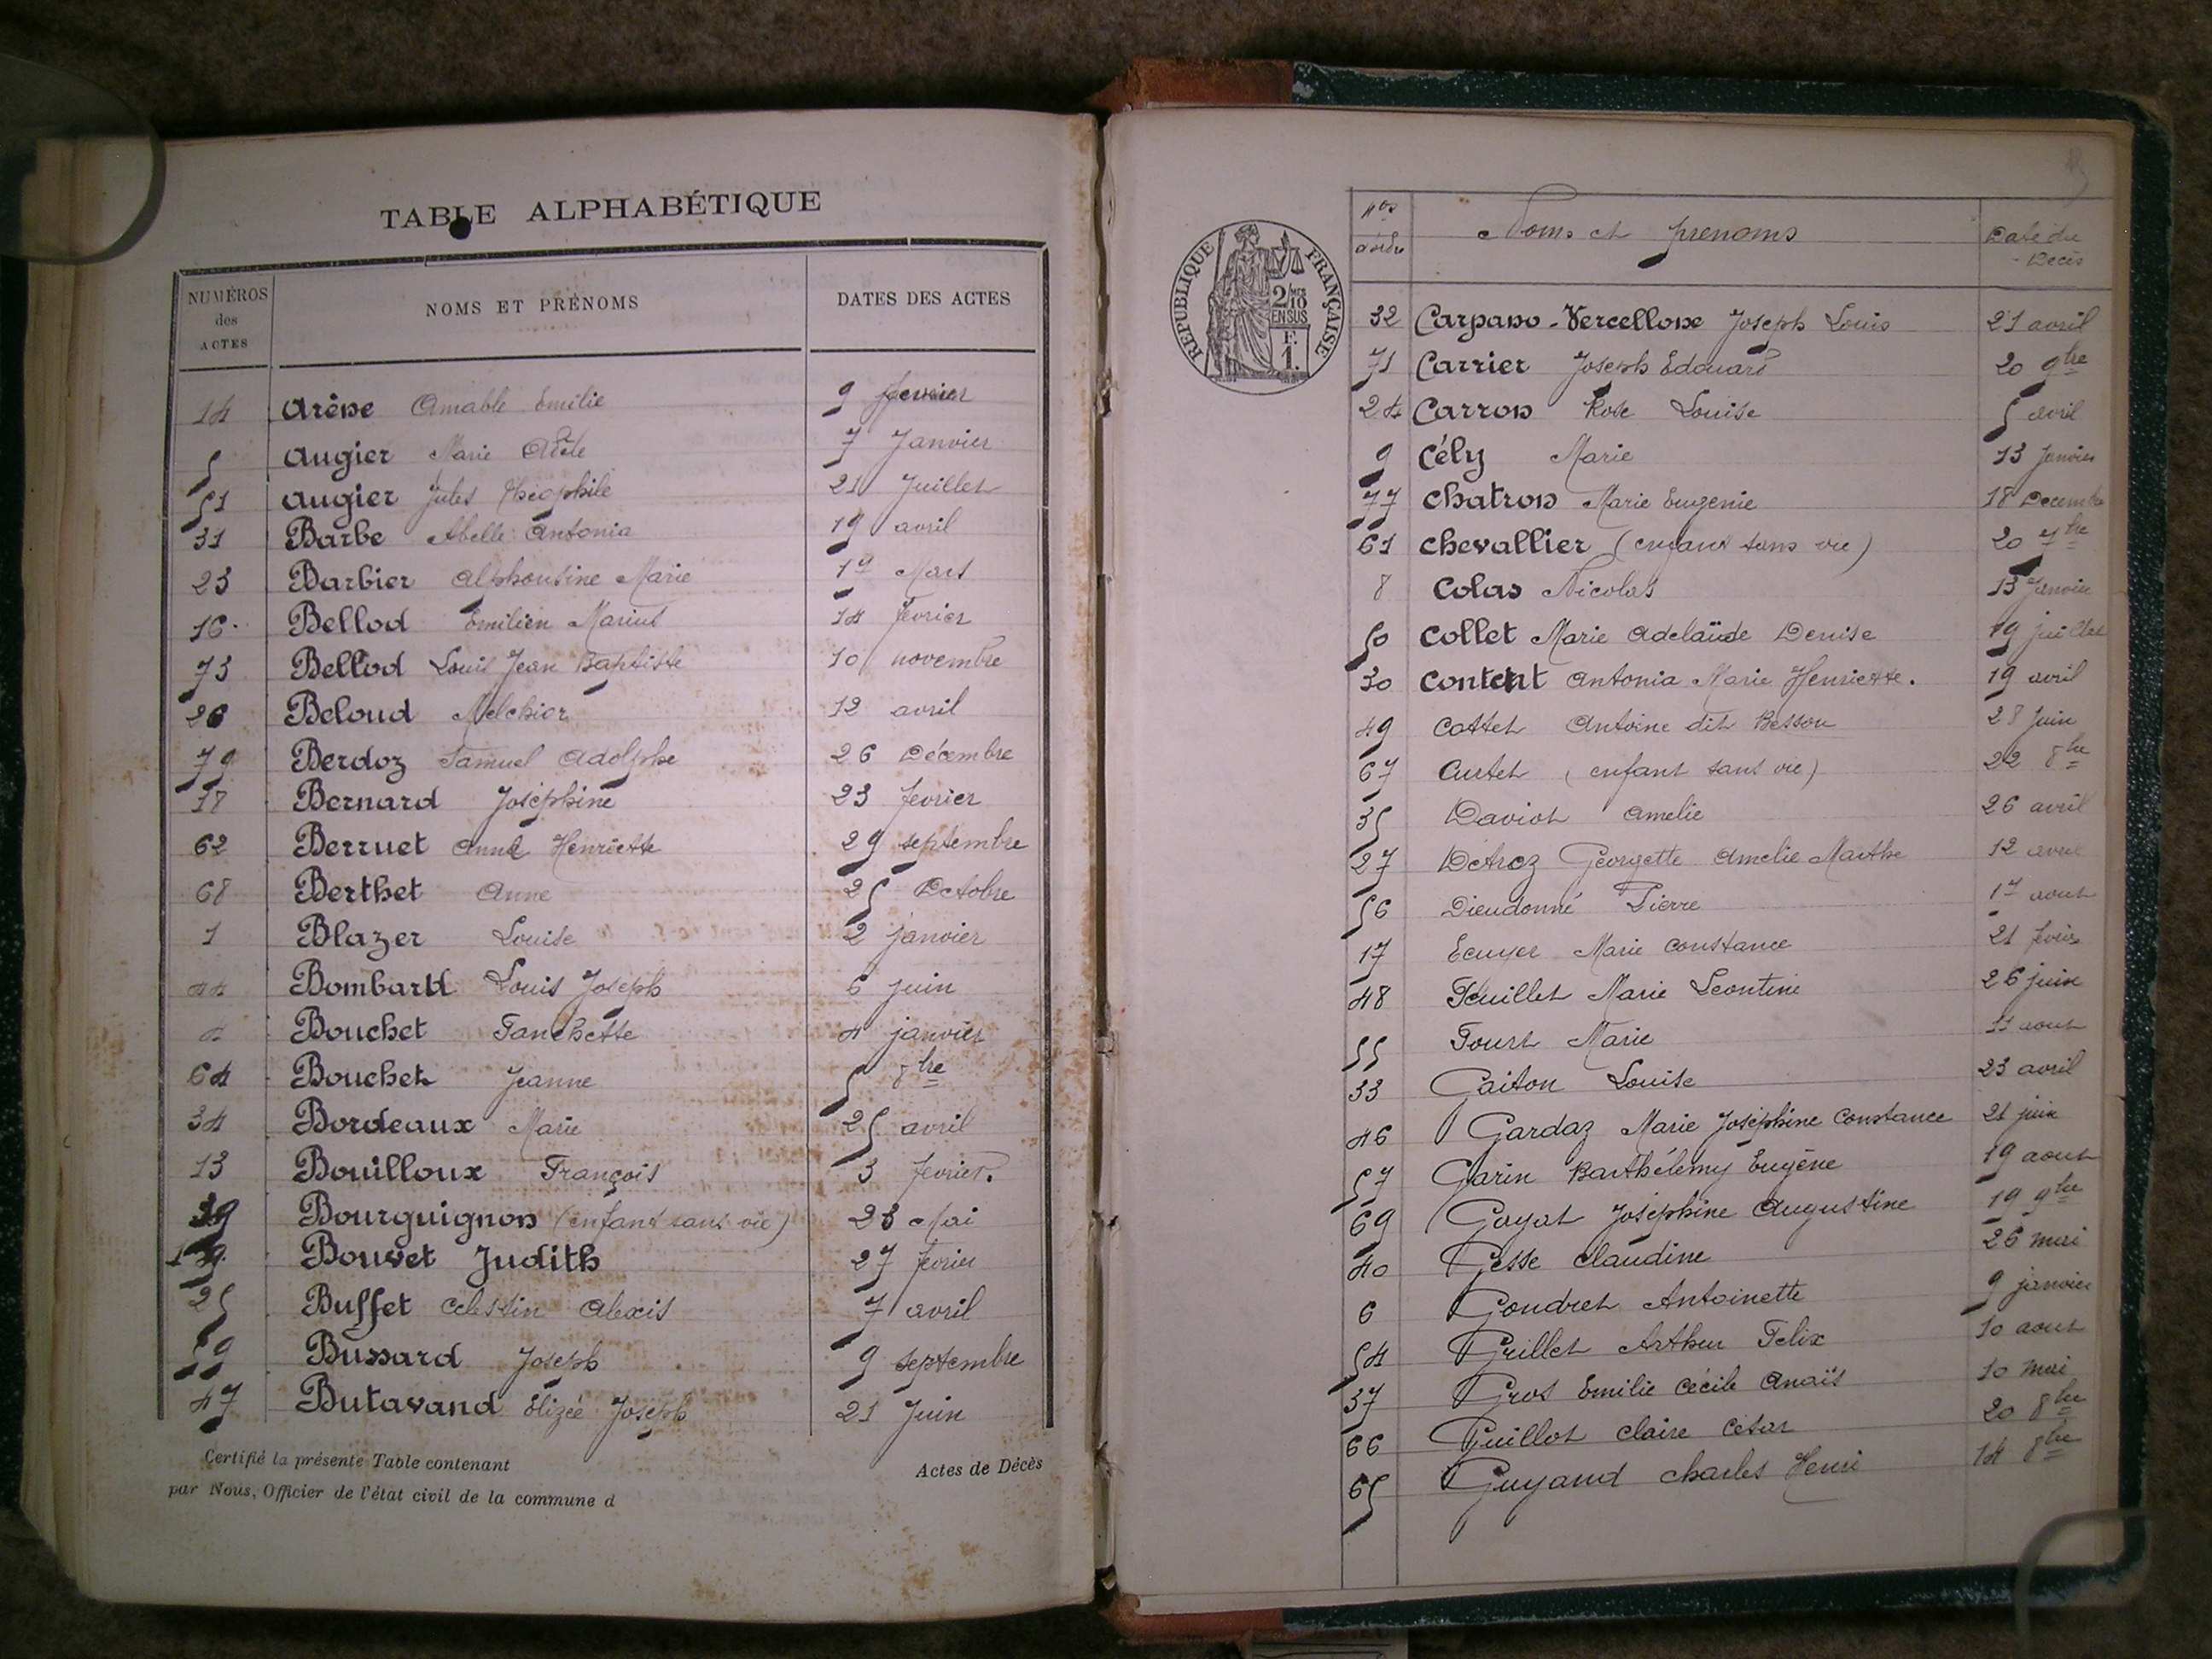 TABLE ALPHABÉTIQUE
NUMÉROS des ACTES NOMS ET PRÉNOMS DATES DES ACTES
14 Arène Amable Emilie 9 fevrier
5 Augier Marie Adèle 7 Janvier
51 Augier Jules Théophile 21 Juillet
31 Barbe Abelle Antonia 19 avril
23 Barbier Alphonsine Marie 19 Mars
16 Bellod Emilien Marius 14 fevrier
73 Bellod Louis Jean Baptiste 10 novembre
26 Beloud Melchior 12 avril
79 Berdoz Samuel Adolphe 26 Décembre
18 Bernard Joséphine 23 fevrier
62 Berruet Anne Henriette 29 septembre
68 Berthet Anne 25 Octobre
1 Blazer Louise 2 janvier
44 Bombard Louis Joseph 6 juin
4 Bouchet Fanchette 4 janvier
64 Bouchet Jeanne 5 8bre
34 Bordeaux Marie 25 avril
13 Bouilloux François 3 fevrier.
39 Bourguignon (enfant sans vie) 26 Mai
19 Bouvet Judith 27 fevrier
25 Buffet Celestin Alexis 7 avril
59 Bussard Joseph 9 septembre
47 Butavand Elizée Joseph 21 Juin
Certifié la présente Table contenant Actes de Décès
par Nous, Officier de l'état civil de la commune d
RÉPUBLIQUE FRANÇAISE
2/10 MES
EN SUS
F.
1.
Nos d'ordre Noms et prenoms Date du Décès
32 Carpano-Vercellone Joseph Louis 21 avril
71 Carrier Joseph Edouard 20 9bre
24 Carron Rose Louise 5 avril
9 Cély Marie 13 Janvier
77 Chatron Marie Eugenie 18 Decembre
61 Chevallier (enfant sans vie) 20 7bre
8 Colas Nicolas 13 Janvier
50 Collet Marie Adelaïde Denise 19 juillet
30 Content Antonia Marie Henriette. 19 avril
49 Cottet Antoine dit Besson 28 Juin
67 Curtet (enfant sans vie) 22 8bre
35 Daviot Amelie 26 avril
27 Détroz Georgette Amelie Marthe 12 avril
56 Dieudonné Pierre 17 aout
17 Ecuyer Marie Constance 21 fevrier
48 Feuillet Marie Leontine 26 juin
55 Fourt Marie 11 aout
33 Gaiton Louise 23 avril
46 Gardaz Marie Joséphine Constance 21 juin
57 Garin Barthélemy Eugène 19 aout
69 Goyat Joséphine Augustine 19 9bre
40 Gesse Claudine 26 mai
6 Gondret Antoinette 9 janvier
54 Grillet Arthur Felix 10 aout
37 Gros Emilie Cécile Anaïs 10 mai
66 Guillot Claire Cesar 20 8bre
65 Guyand Charles Henri 14 8bre